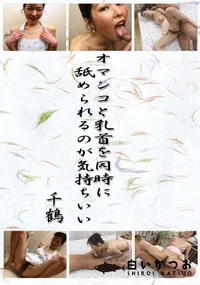 オマンコと乳首を同時に
舐められるのが気持ちいい
千鶴
白いかつお
SHIROI KATSUO